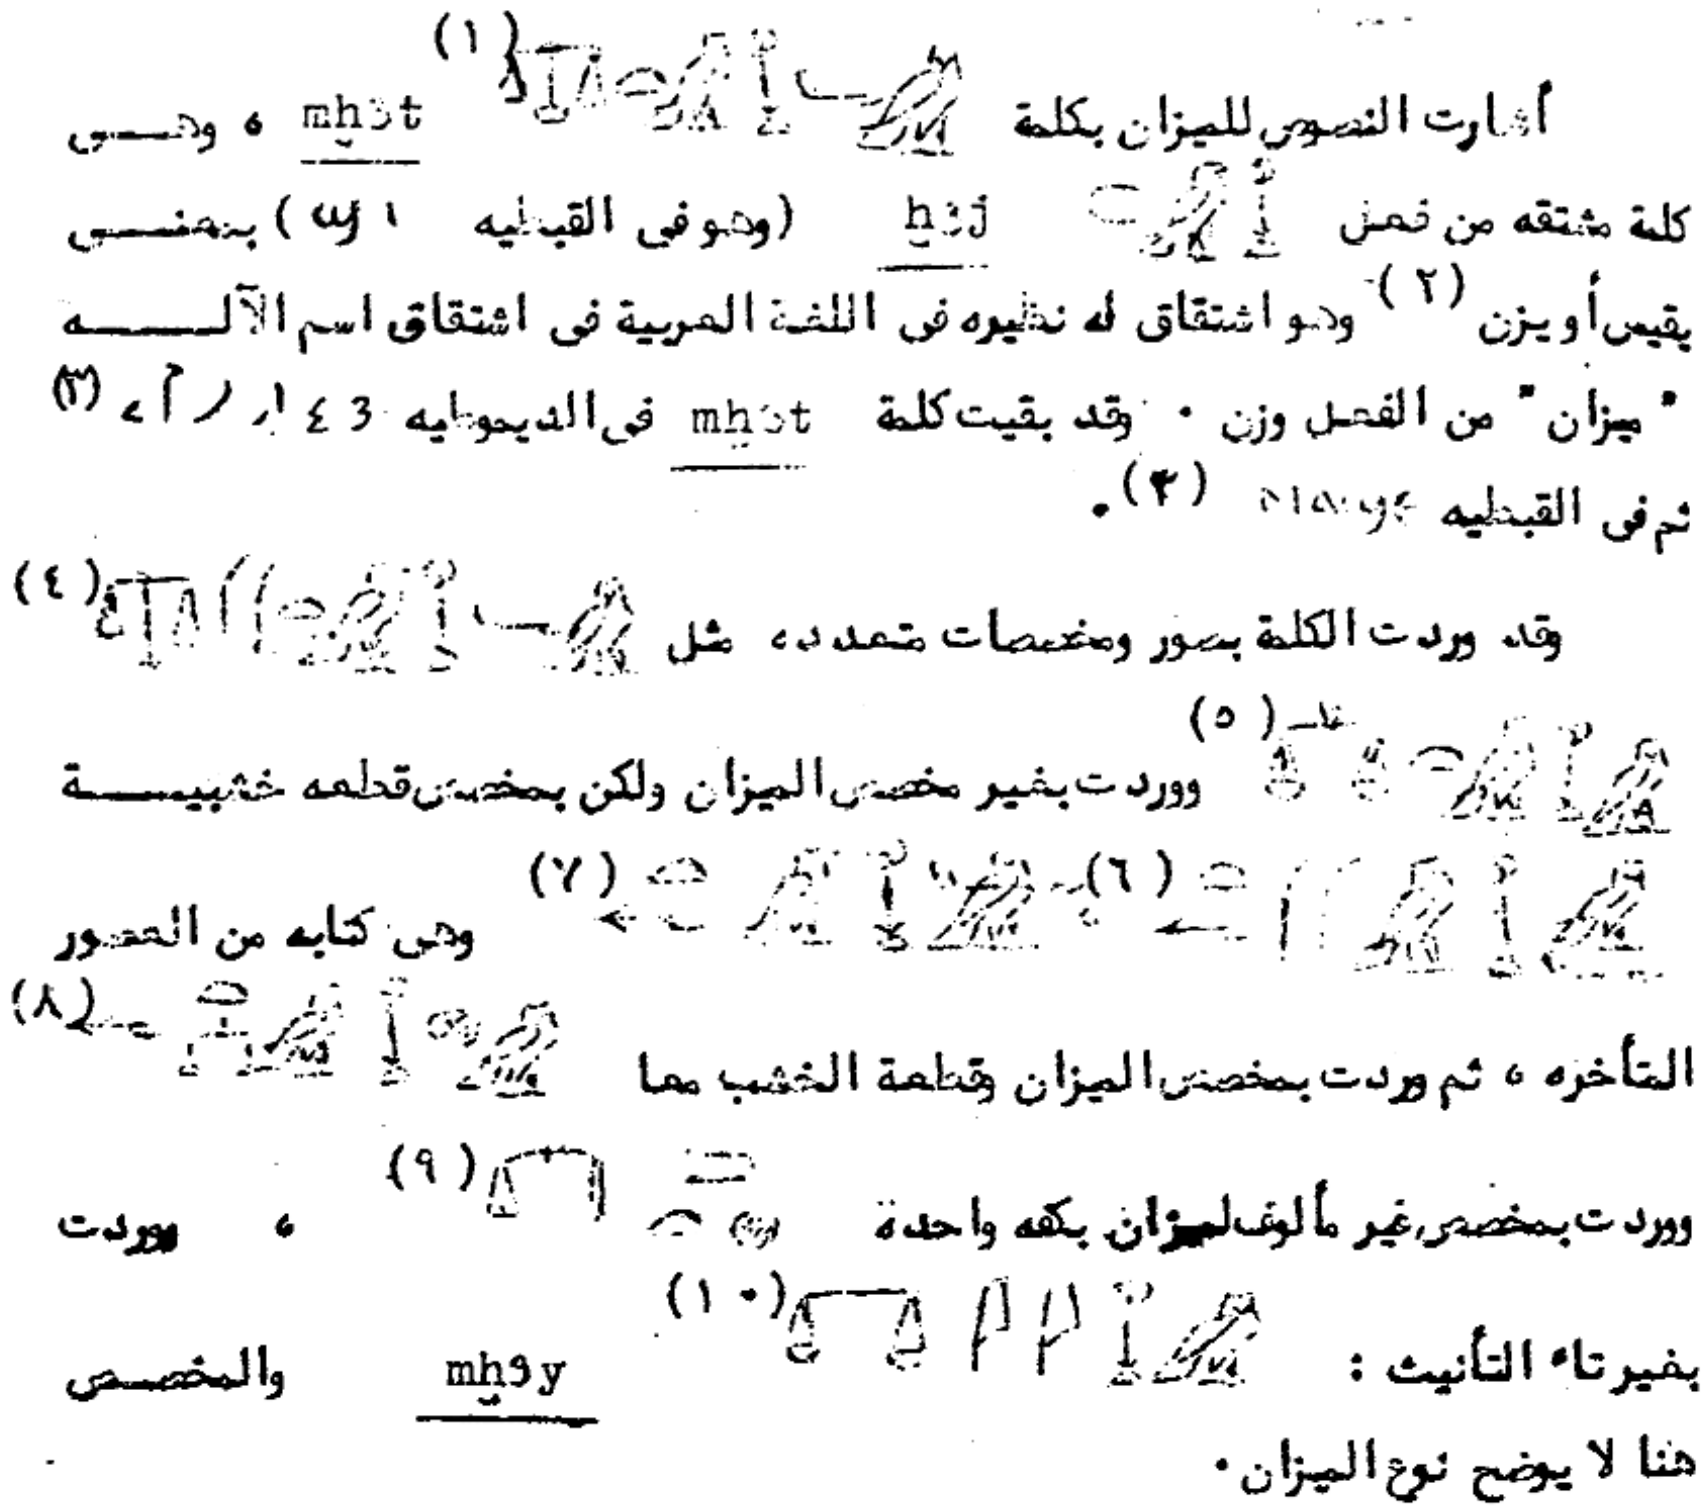 أشارت النصوص للميزان بكلمة (١) mḫ3t ، وهــى
كلمة مشتقه من فعل ḫ3j (وهو فى القبطيه ϣι) بمعنــى
يقيس أو يزن (٢) وهو اشتقاق له نظيره فى اللغة العربية فى اشتقاق اسم الآلــه
" ميزان " من الفعل وزن ٠ وقد بقيت كلمة mḫ3t فى الديموطيه (٣)
ثم فى القبطيه (٣)٠
وقد وردت الكلمة بصور ومخصصات متعدده مثل (٤)
(٥) ووردت بغير مخصص الميزان ولكن بمخصص قطعه خشبيــة
(٦) (٧) وهى كتابه من العصور
المتأخره ، ثم وردت بمخصص الميزان وقطعة الخشب معا (٨)
ووردت بمخصص غير مألوف لميزان بكفه واحدة (٩) ، ووردت
بغير تاء التأنيث : (١٠) mḫ3y والمخصـص
هنا لا يوضح نوع الميزان ٠